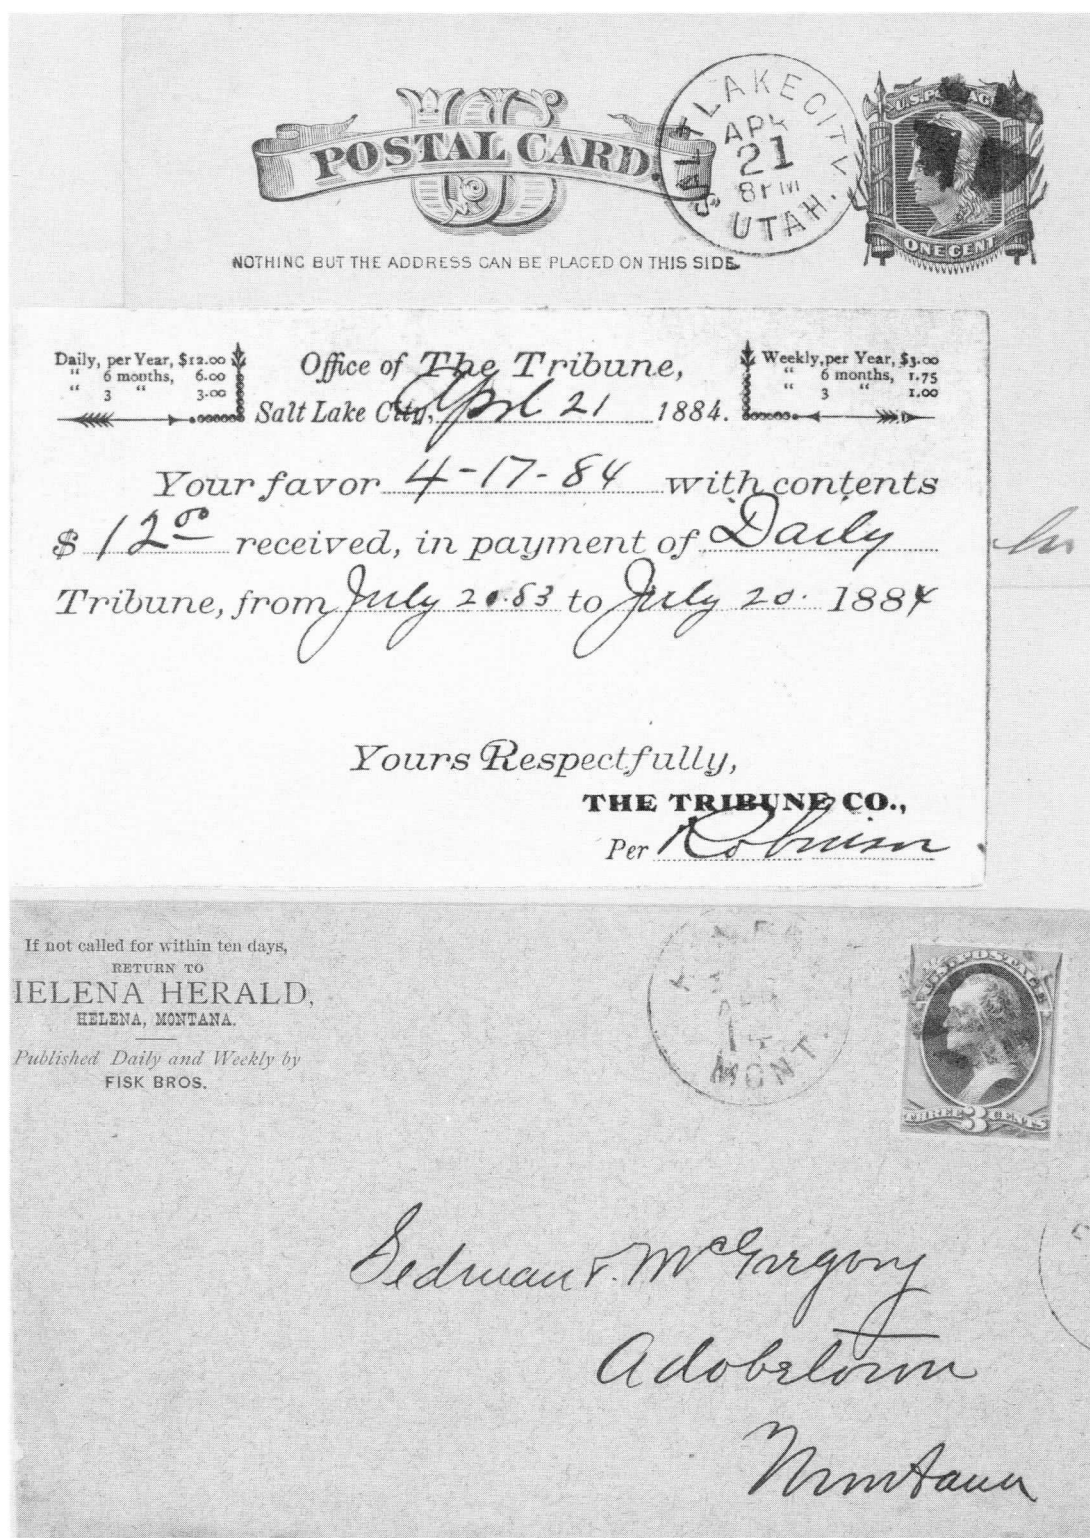 US
POSTAL CARD.
NOTHING BUT THE ADDRESS CAN BE PLACED ON THIS SIDE.
SALT LAKE CITY
APR
21
8PM
UTAH.
U.S. POSTAGE
ONE CENT
Daily, per Year, $12.00
" 6 months, 6.00
" 3 " 3.00
Office of The Tribune,
Salt Lake City, April 21 1884.
Weekly, per Year, $3.00
" 6 months, 1.75
" 3 " 1.00
Your favor 4-17-84 with contents
$ 12 00 received, in payment of Daily
Tribune, from July 20.83 to July 20. 1884
Yours Respectfully,
THE TRIBUNE CO.,
Per Robinson
If not called for within ten days,
RETURN TO
HELENA HERALD,
HELENA, MONTANA.
Published Daily and Weekly by
FISK BROS.
MONT.
U.S. POSTAGE
THREE 3 CENTS
Sedman &
Adobetown
Montana